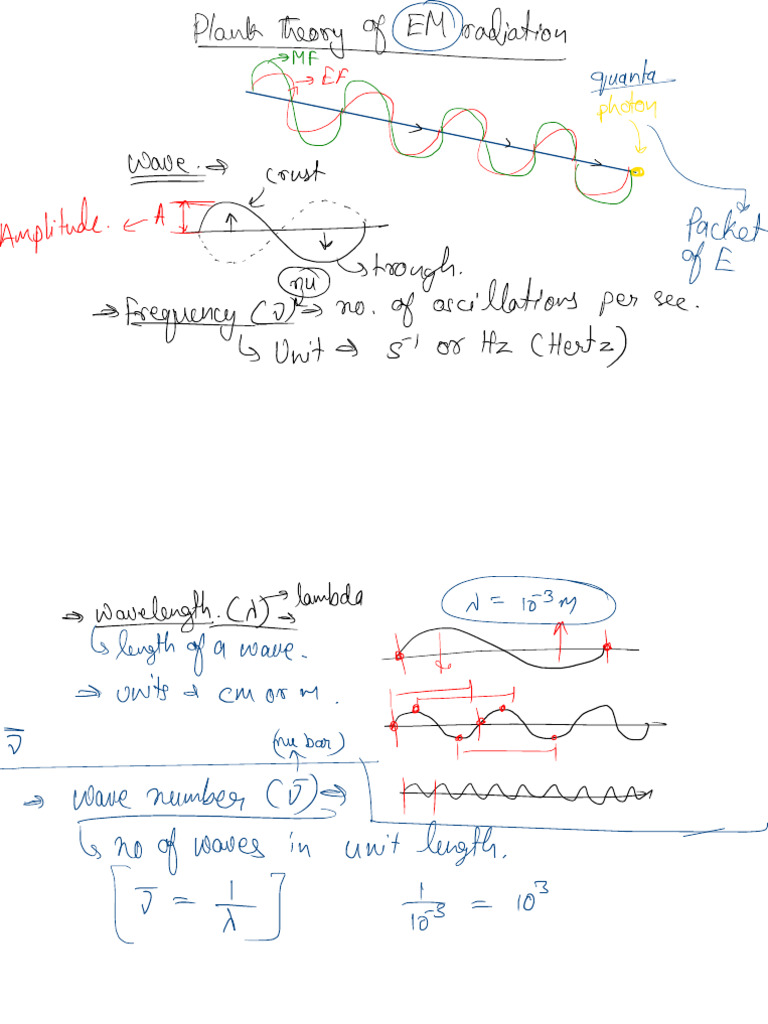 Plank theory of EM radiation
→ MF
→ EF
quanta
photon
Wave. →
crust
Amplitude. ← A
Packet
of E
trough.
nu
→ Frequency (ν) → no. of oscillations per sec.
↳ Unit → s⁻¹ or Hz (Hertz)
→ Wavelength. (λ) → lambda
→
λ = 10⁻³ m
↳ length of a wave.
→ Units → cm or m.
ν̅
(nu bar)
→ Wave number (ν̅) →
↳ no of waves in unit length.
[ν̅ = 1/λ]
1/10⁻³ = 10³